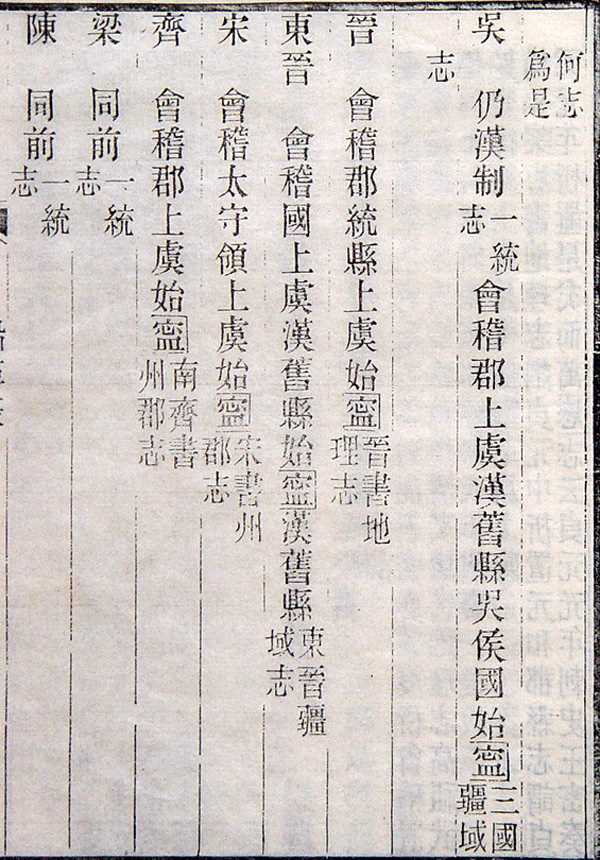 何志為是
吳　仍漢制一統志會稽郡上虞漢舊縣吳侯國始寍三國疆域
志
晉　會稽郡統縣上虞始寍晉書地理志
東晉　會稽國上虞漢舊縣始寍漢舊縣東晉疆域志
宋　會稽太守領上虞始寍宋書州郡志
齊　會稽郡上虞始寍南齊書州郡志
梁　同前一統志
陳　同前一統志